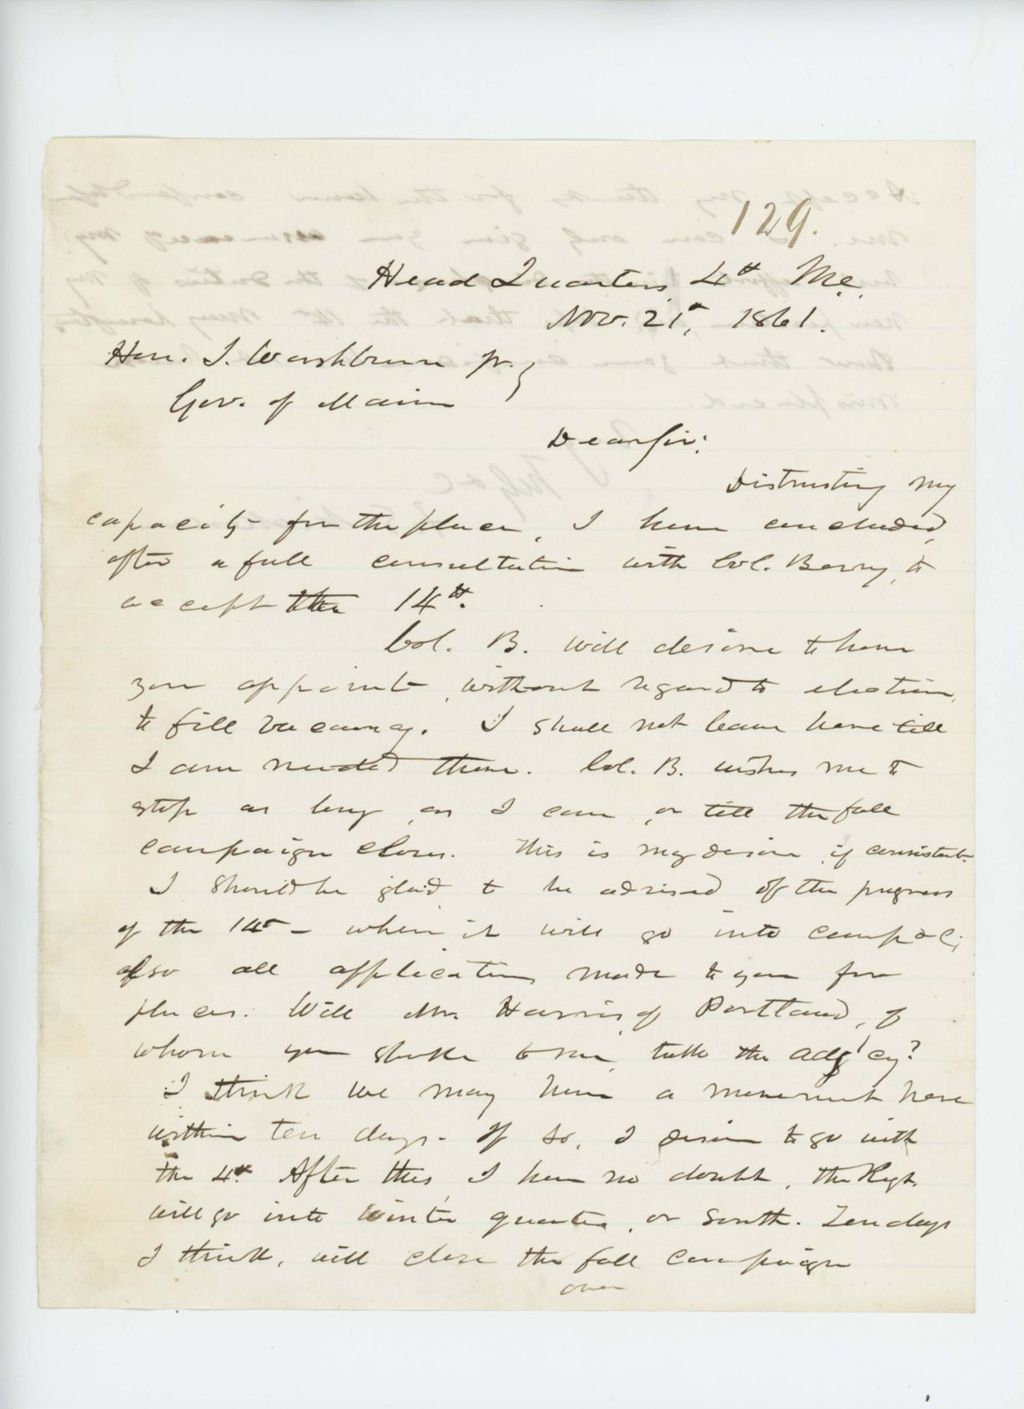 129.
Head Quarters 4th Me.
Nov. 21st, 1861.
Hon. I. Washburn Jr.,
Gov. of Maine
Dear Sir:
Distrusting my
capacity for the place, I have concluded,
after a full consultation with Col. Berry, to
accept the 14th.
Col. B. will desire to have
you appoint, without regard to election,
to fill vacancy. I shall not leave here till
I am needed there. Col. B. wishes me to
stop as long as I can, or till the fall
campaign closes. This is my desire, if consistent.
I should be glad to be advised of the progress
of the 14th - when it will go into camp &c;
also all applications made to you for
places. Will Mr. Harris of Portland, of
whom you spoke to me, take the adj'cy?
I think we may have a movement here
within ten days. If so, I desire to go with
the 4th. After this, I have no doubt, the Regt.
will go into winter quarters, or South. Ten days
I think, will close the fall campaign
over